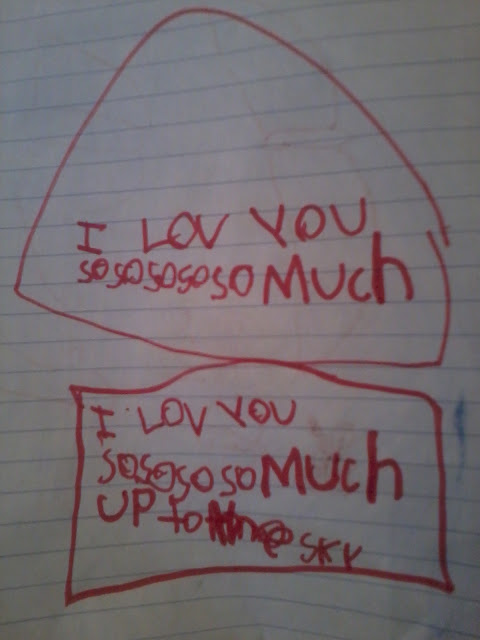 I LOV YOU
sosososososo Much
I LOV YOU
sososososo Much
UP to the SKY